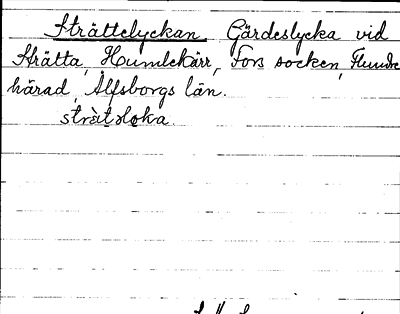 Strättelyckan Gärdeslycka vid
Strätta, Humlekärr, Fors socken, Flundre
härad, Älfsborgs län.
strätsloka.